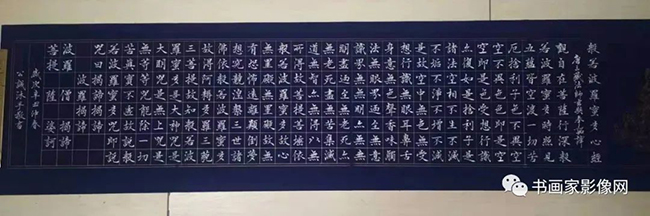 般若波羅蜜多心經
唐三藏法師玄奘奉詔譯
觀自在菩薩行深般
若波羅蜜多時照見
五蘊皆空度一切苦
厄捨利子色不異空
空不異色色即是空
空即是色受想行識
亦復如是捨利子是
諸法空相不生不滅
不垢不淨不增不減
是故空中無色無受
想行識無眼耳鼻舌
身意無色聲香味觸
法無眼界乃至無意
識界無無明亦無無
明盡乃至無老死亦
無老死盡無苦集滅
道無智亦無得以無
所得故菩提薩埵依
般若波羅蜜多故心
無罣礙無罣礙故無
有恐怖遠離顛倒夢
想究竟涅槃三世諸
佛依般若波羅蜜多
故得阿耨多羅三藐
三菩提故知般若波
羅蜜多是大神咒是
大明咒是無上咒是
無等等咒能除一切
苦真實不虛故說般
若波羅蜜多咒即說
咒曰揭諦揭諦
波羅揭諦
波羅僧揭諦
菩提薩婆訶
歲次
公誠沐手敬書
书画家影像网